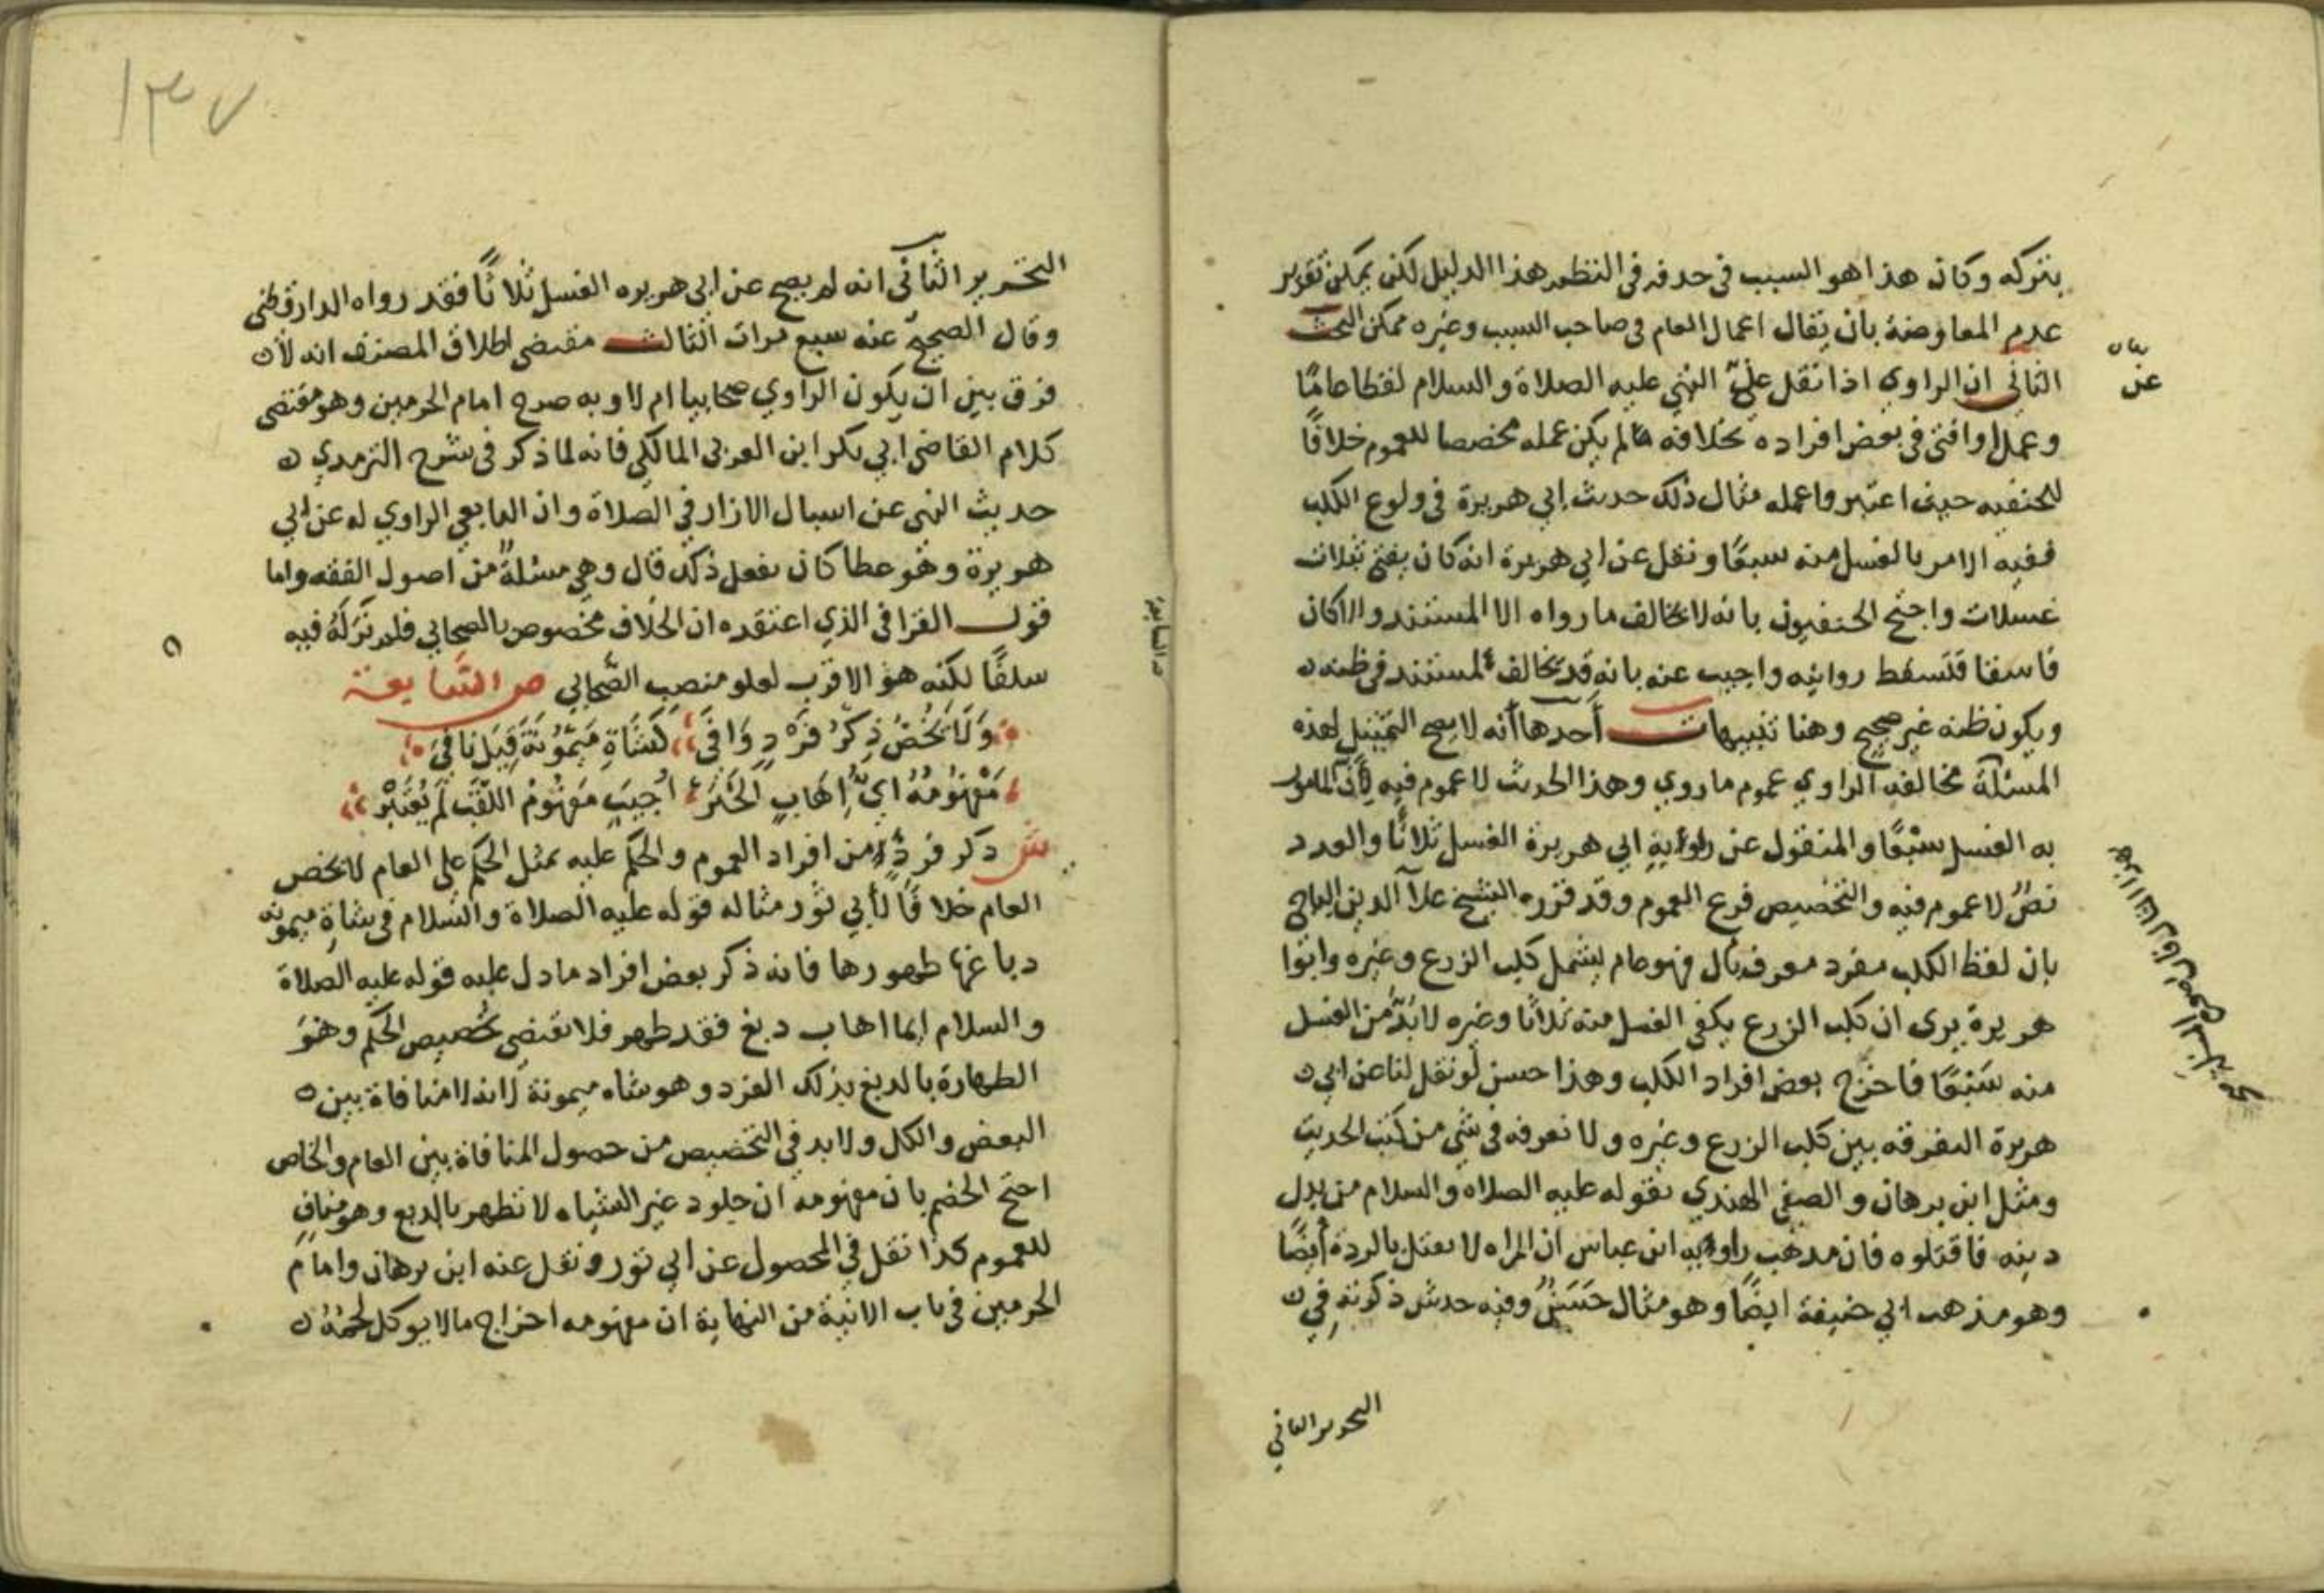 بتركه وكان هذا هو السبب في حدفه في النظم هذا الدليل لكن يمكن تقرير
عدم المعاوضة بان يقال اعمال العام في صاحب السبب وغيره ممكن البحث
الثاني ان الراوي اذا نقل عن النبي عليه الصلاة والسلام لفظا عامًا
وعمل او افتى في بعض افراده بخلافه لم يكن عمله مخصصا للعموم خلافًا
للحنفيه حيث اعتبروا عمله مثال ذلك حديث ابي هريرة في ولوغ الكلب
ففيه الامر بالغسل منه سبعًا ونقل عن ابي هريرة انه كان يفتي بثلاث
غسلات واحتج الحنفيون بانه لا يخالف ما رواه الا لمستند والا كان
فاسقا فتسقط روايته واجيب عنه بانه قد يخالف لمستند في ظنه
ويكون ظنه غير صحيح وهنا تنبيهات أحدها أنه لا يصح التمثيل لهذه
المسئلة مخالفه الراوي عموم ما روي وهذا الحديث لا عموم فيه لأن المامور
به الغسل سبْعًا والمنقول عن راويه ابي هريرة الغسل ثلاثًا والعدد
نصٌ لا عموم فيه والتخصيص فرع العموم وقد قرره الشيخ علاء الدين الباجي
بان لفظ الكلب مفرد معرف بال فهو عام يشمل كلب الزرع وغيره وابوا
هريرة يرى ان كلب الزرع يكفي الغسل منه ثلاثا وغيره لا بدّ من الغسل
منه سَبْعًا فاخرج بعض افراد الكلب وهذا حسن لو نقل لنا عن ابي
هريرة التفرقه بين كلب الزرع وغيره ولا نعرفه في شي من كتب الحديث
ومثل ابن برهان والصفي الهندي بقوله عليه الصلاه والسلام من بدل
دينه فاقتلوه فان مدهب راويه ابن عباس ان المراه لا تقتل بالردة أيضًا
وهو مذهب ابي حنيفة ايضًا وهو مثال حَسَنٌ وفيه حديث ذكرته في
التحرير الثاني
عن
التحرير الثاني انه لم يصح عن ابي هريره الغسل ثلاثًا فقد رواه الدارقطني
وقال الصحيح عنه سبع مرات الثالث مقتضى اطلاق المصنف انه لا
فرق بين ان يكون الراوي صحابيا ام لا وبه صرح امام الحرمين وهو مقتضى
كلام القاضي ابي بكر ابن العربي المالكي فانه لما ذكر في شرح الترمدي
حديث النهي عن اسبال الازار في الصلاة وان التابعي الراوي له عن ابي
هريرة وهو عطا كان يفعل ذلك قال وهي مسئلة من اصول الفقه واما
قول القرافي الذي اعتقده ان الخلاف مخصوص بالصحابي فلم نرَ لَهُ فيه
سلفًا لكنه هو الاقرب لعلو منصب الصَّحابي ص السَّابعة
وَلَا يَخُصُّ ذِكْرُ فَرْدٍ وَافَى كَشَاةِ مَيْمُونَةَ قِيلَ نَافى
مَفْهُومُهُ اَيُّ إِهَابٍ الخَبَرَ أُجيبَ مَفهُومُ اللقَبْ لَمْ يُعْتَبَرْ
ش دكر فردٍ من افراد العموم والحكم عليه بمثل الحكم على العام لا يخص
العام خلافًا لأبي ثور مثاله قوله عليه الصلاة والسَّلام في شاةِ ميمونه
دباغها طهورها فانه ذكر بعض افراد ما دل عليه قوله عليه الصلاة
والسلام ايما اهاب دبغ فقد طهر فلا يقتضي تخصيص الحكم وهوَ
الطهارة بالدبغ بذلك الفرد وهو شاه ميمونة لانه لا منافاة بين
البعض والكل ولا بد في التخصيص من حصول المنافاة بين العام والخاص
احتج الخصم بان مفهومه ان جلود غير الشياه لا تطهر بالدبغ وهو منافٍ
للعموم كدا نقل في المحصول عن ابي ثور ونقل عنه ابن برهان وامام
الحرمين في باب الانية من النهاية ان مفهومه اخراج ما لا يوكل لحمُهُ
١٣٧